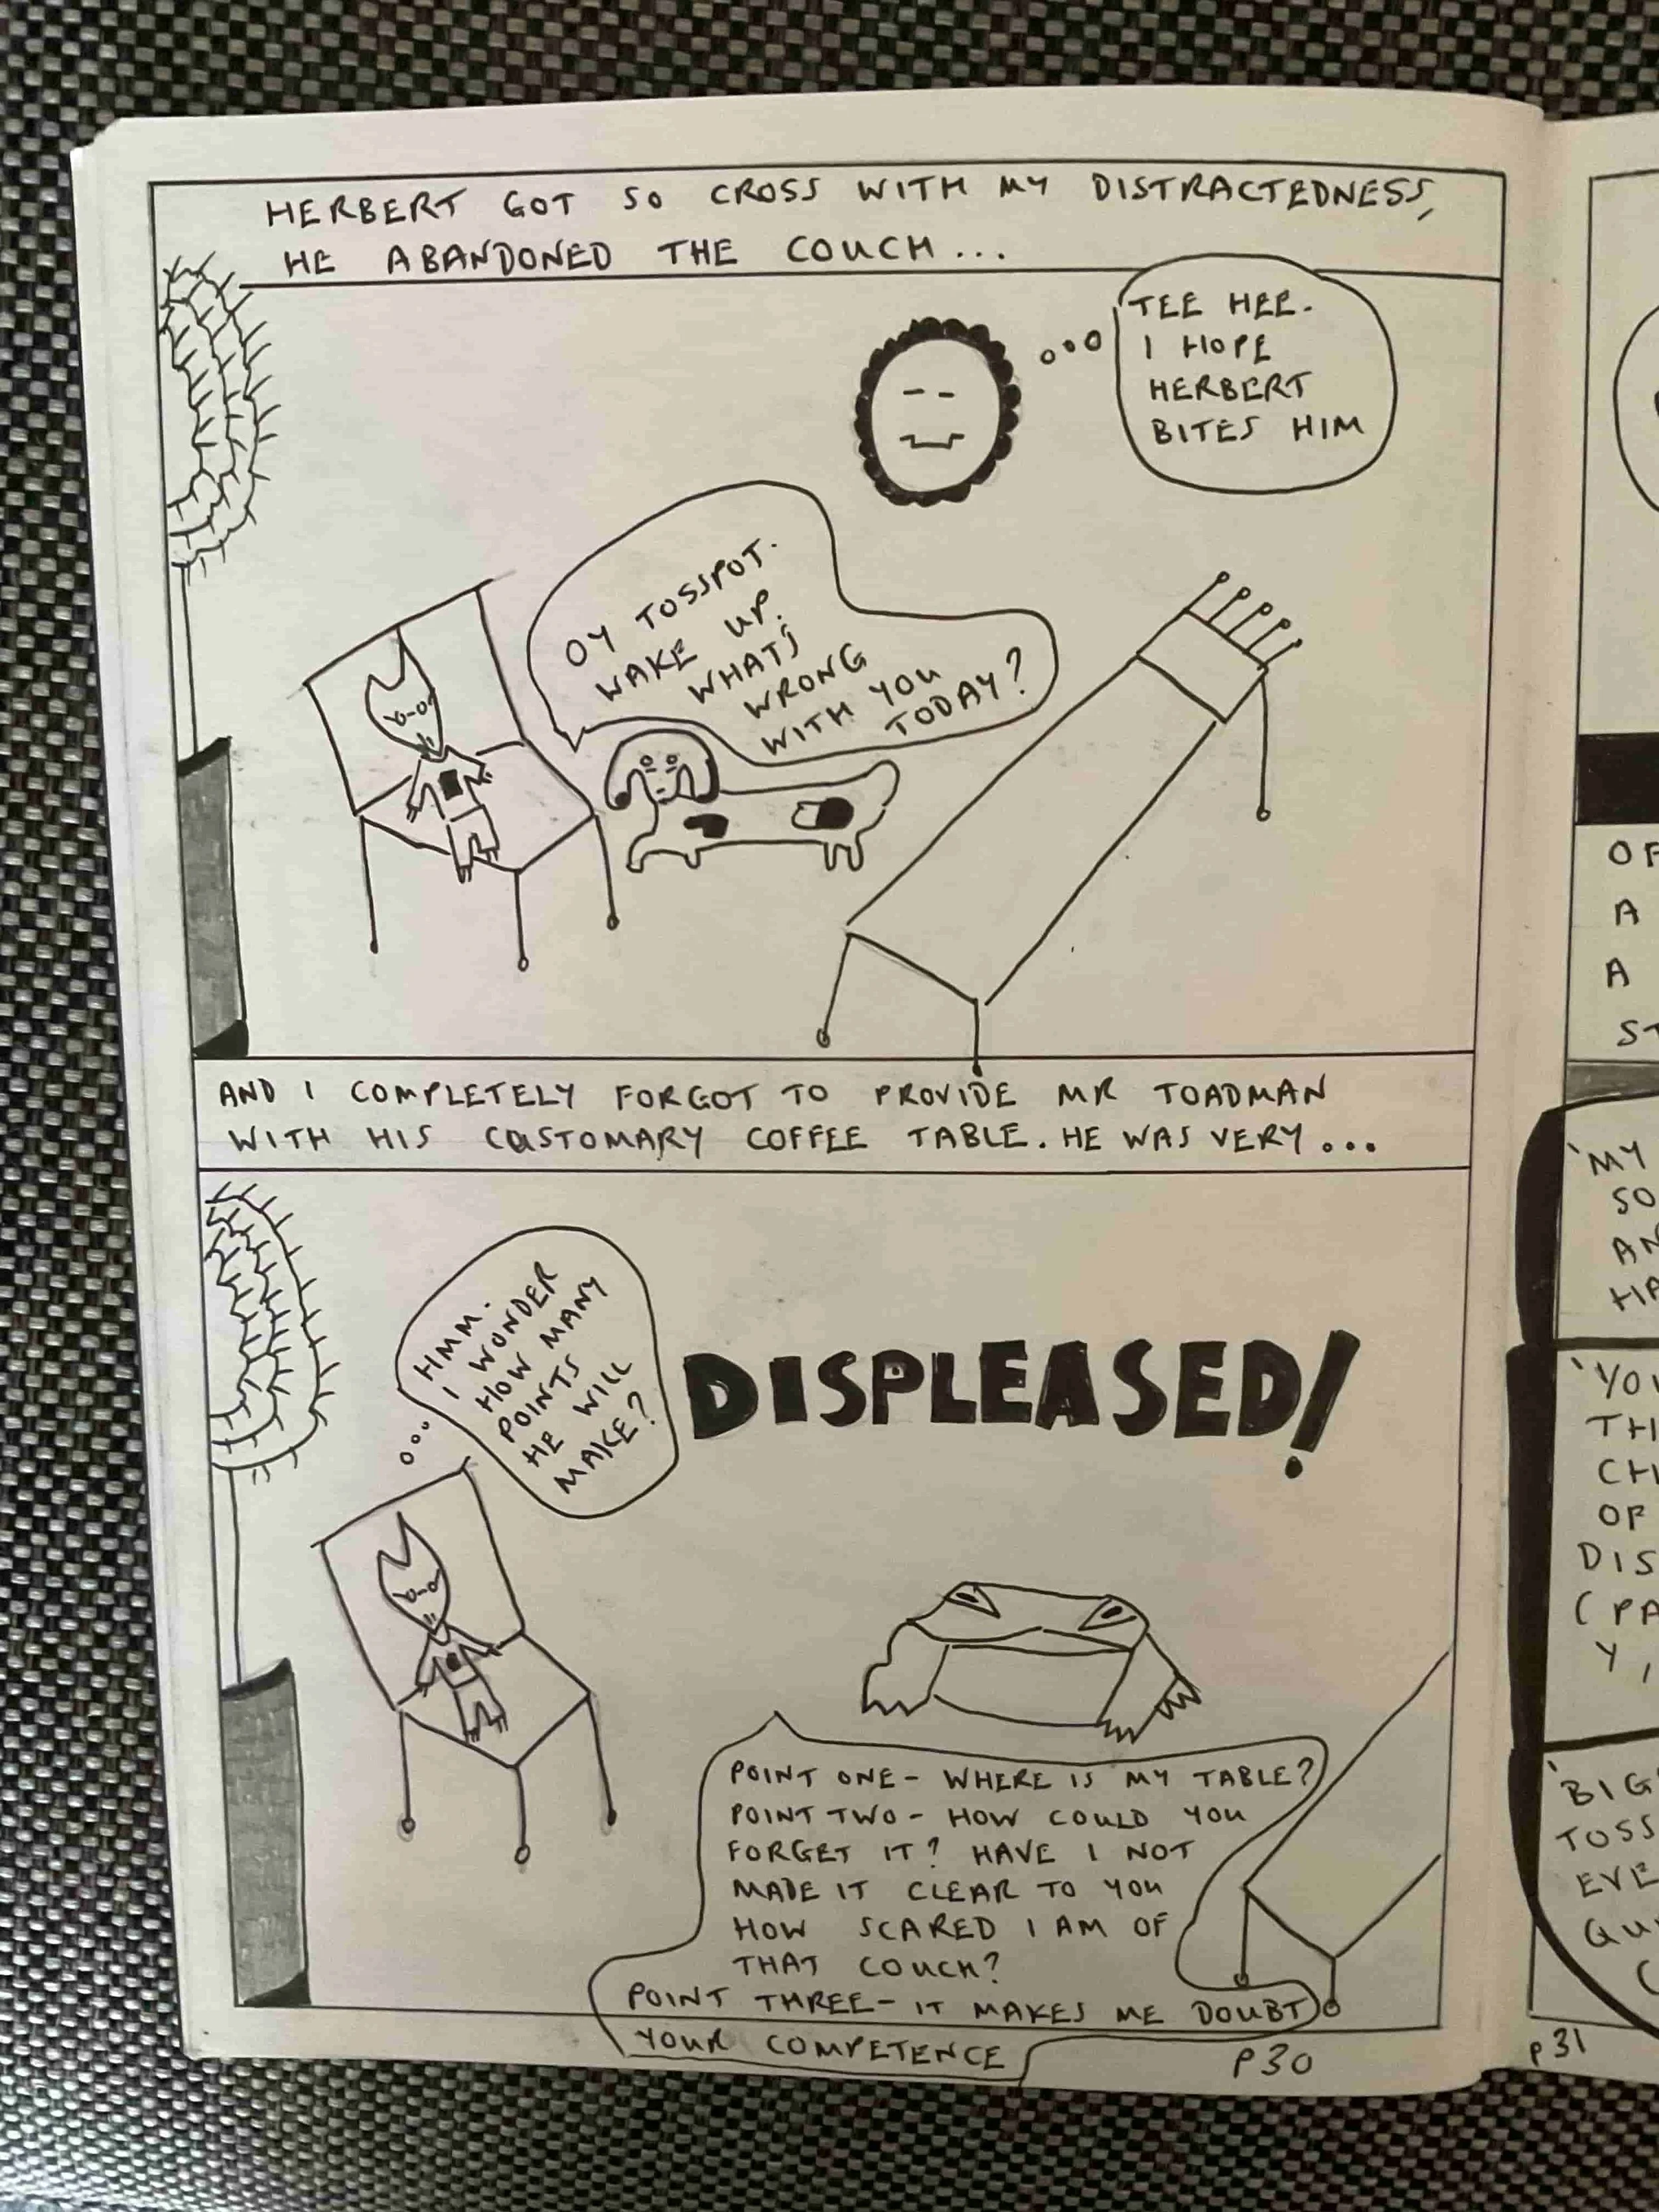 HERBERT GOT SO CROSS WITH MY DISTRACTEDNESS,
HE ABANDONED THE COUCH...
TEE HEE.
I HOPE
HERBERT
BITES HIM
OY TOSSPOT.
WAKE UP.
WHATS
WRONG
WITH YOU
TODAY?
AND I COMPLETELY FORGOT TO PROVIDE MR TOADMAN
WITH HIS CUSTOMARY COFFEE TABLE. HE WAS VERY...
HMM.
I WONDER
HOW MANY
POINTS
HE WILL
MAKE?
DISPLEASED!
POINT ONE - WHERE IS MY TABLE?
POINT TWO - HOW COULD YOU
FORGET IT? HAVE I NOT
MADE IT CLEAR TO YOU
HOW SCARED I AM OF
THAT COUCH?
POINT THREE - IT MAKES ME DOUBT
YOUR COMPETENCE
P30
A
A
'MY
SO
'YOU
OF
(PA
Y,
'BIG
TOSS
EVE
P31